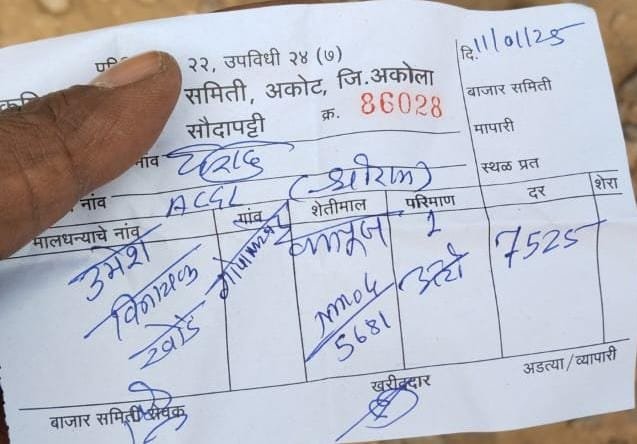 २२, उपविधी २४ (७)
दि. 11/01/25
समिती, अकोट, जि.अकोला
बाजार समिती
सौदापट्टी क्र. 86028
मापारी
नांव
स्थळ प्रत
नांव ACGL (श्रीराम)
मालधन्याचे नांव गांव शेतीमाल परिमाण दर शेरा
उमेश कापूस 1 7525
विनायक
खोडे 5681
बाजार समिती सेवक खरीददार अडत्या/व्यापारी